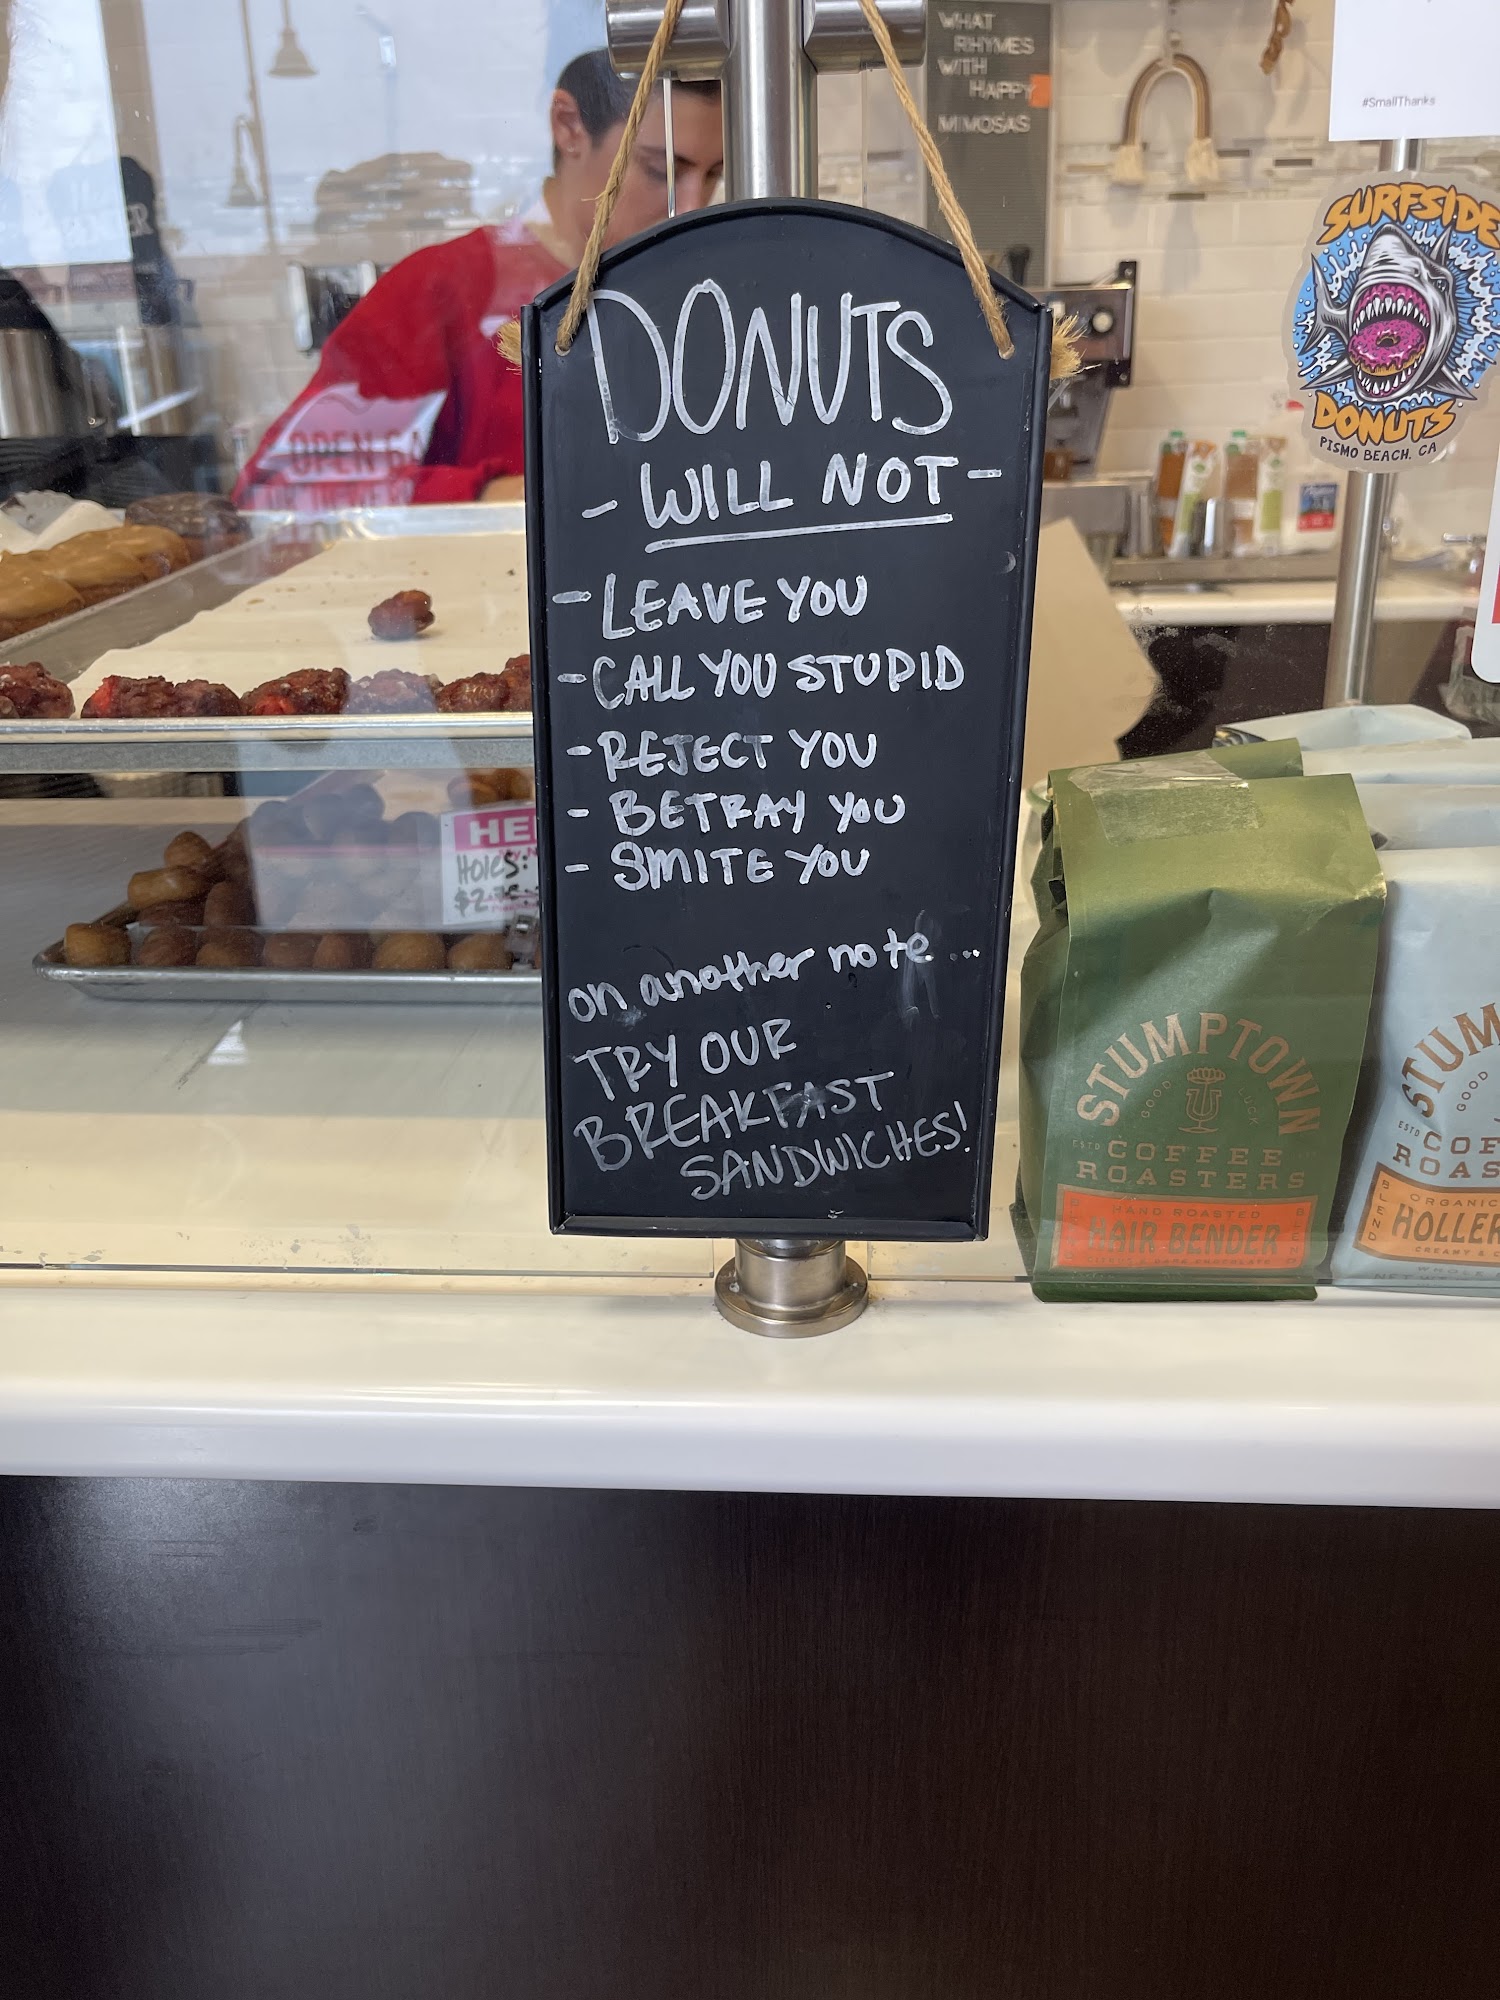 WHAT
RHYMES
WITH
HAPPY
MIMOSAS
#SmallThanks
SURFSIDE
DONUTS
PISMO BEACH, CA
DONUTS
- WILL NOT -
- LEAVE YOU
- CALL YOU STUPID
- REJECT YOU
- BETRAY YOU
- SMITE YOU
on another note...
TRY OUR
BREAKFAST
SANDWICHES!
OPEN
HE
HOLES:
STUMPTOWN
GOOD LUCK
ESTD COFFEE
ROASTERS
HAND ROASTED
BLEND HAIR BENDER BLEND
CITRUS & DARK CHOCOLATE
STUM
GOOD
ESTD COF
ROAS
ORGANIC
BLEND HOLLER
CREAMY &
WHOLE
NET